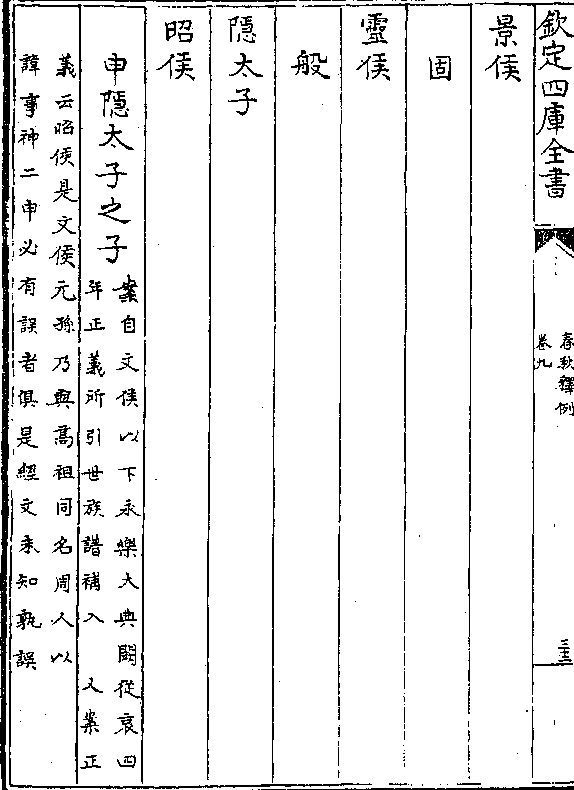 欽定四庫全書
春秋釋例
卷九
三十三
景侯
固
靈侯
般
隱太子
昭侯
申隱太子之子
案自文侯以下永樂大典闕從哀四
年正義所引世族譜補入 又案正
義云昭侯是文侯元孫乃與高祖同名周人以
諱事神二申必有誤者俱是經文未知孰誤